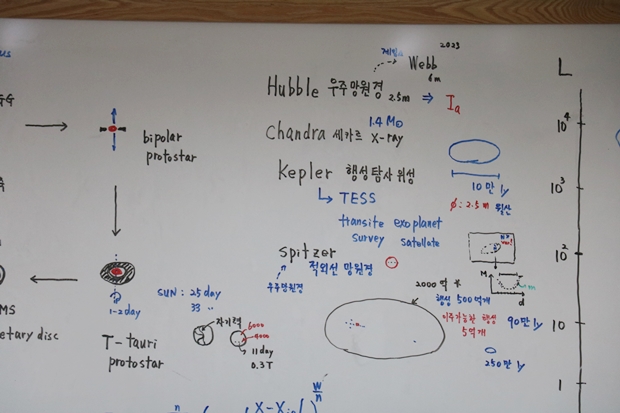 us
GG
bipolar
protostar
MS
etary disc
1-2day
T-tauri
protostar
SUN : 25day
33 〃
자기력
6000
4000
11 day
0.3T
제임스
2023
Webb
6m
Hubble 우주망원경 2.5m ⇒ Ia
1.4 M⊙
Chandra X-ray
Kepler 행성탐사위성
↳ TESS
transite exoplanet
survey satellate
Spitzer
적외선 망원경
우주망원경
10만 ly
φ : 2.5m
2000억 *
행성 500억개
이주가능한 행성
5억개
90만 ly
250만 ly
M
d
L
10⁴
10³
10²
10
1